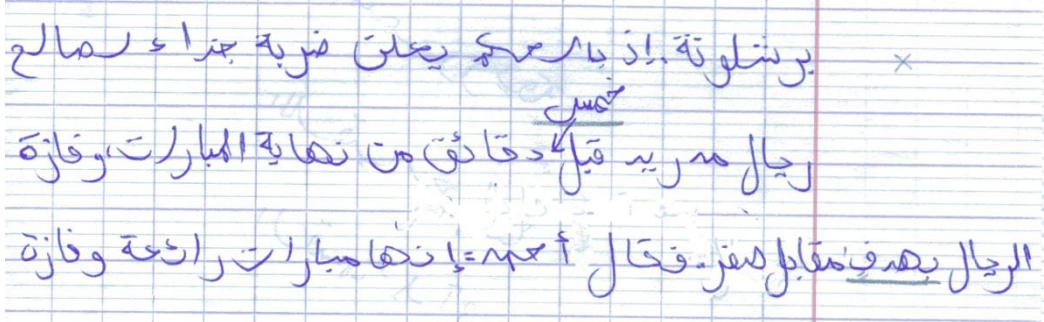 برشلونة. إذ بالحكم يعلن ضربة جزاء لصالح
خمس
ريال مدريد قبل دقائق من نهاية المبارات، وفازة
الريال بهدف مقابل صفر. فقال أحمد: إنها مبارات رائعة وفازة